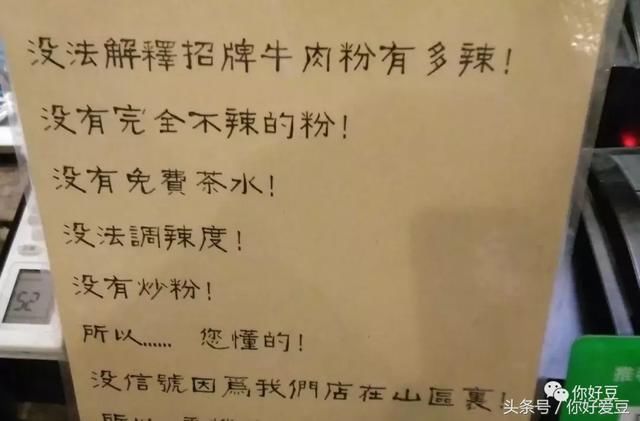 没法解釋招牌牛肉粉有多辣!
没有完全不辣的粉!
没有免費茶水!
没法調辣度!
没有炒粉!
所以…… 您懂的!
没信號因爲我們店在山區裏!
所以
52
你好豆
头条号/你好爱豆